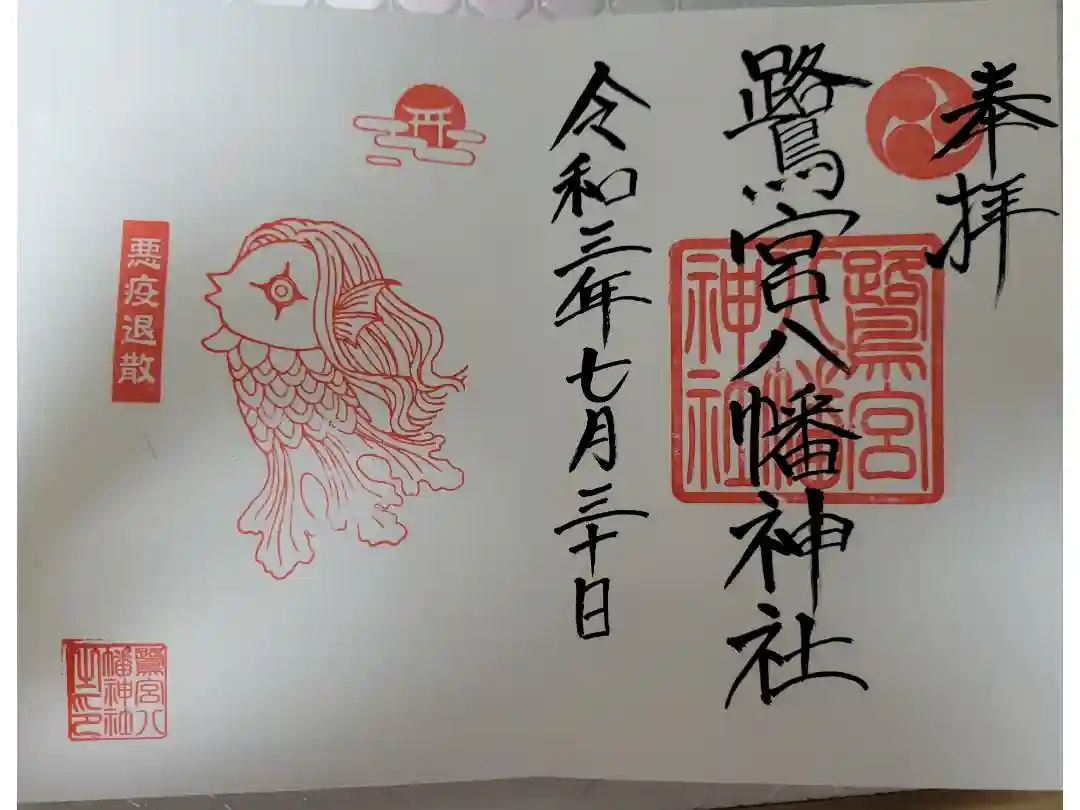 奉拝
鷺宮八幡神社
鷺宮
八幡
神社
令和三年七月三十日
悪疫退散
鷺宮八
幡神社
之印